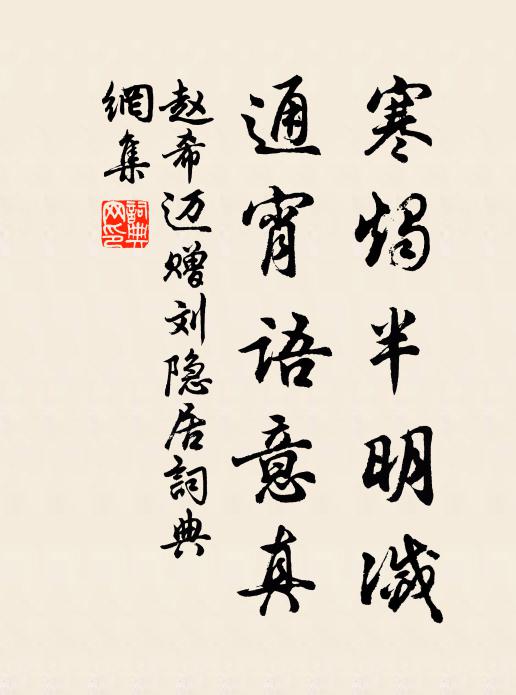 寒燭半明滅
通宵語意真
赵希迈赠刘隐居詞典
網集
詞典網印